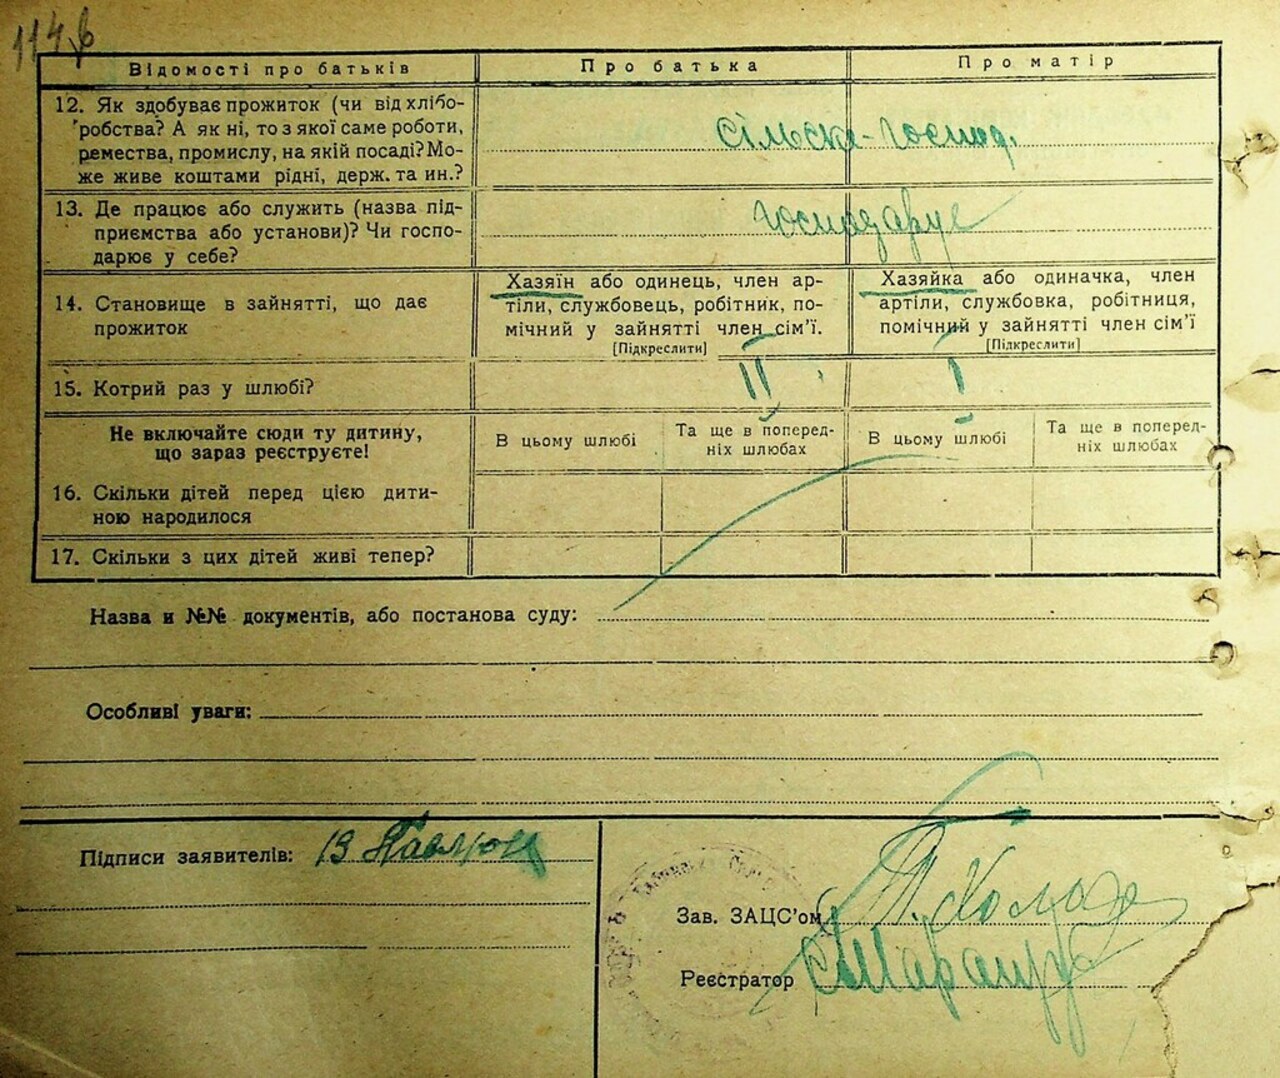 114
Відомості про батьків
Про батька
Про матір
12. Як здобуває прожиток (чи від хлібо-
робства? А як ні, то з якої саме роботи,
ремества, промислу, на якій посаді? Мо-
же живе коштами рідні, держ. та ин.?
сільске-господ.
13. Де працює або служить (назва під-
приємства або установи)? Чи госпо-
дарює у себе?
господарує
14. Становище в зайнятті, що дає
прожиток
Хазяїн або одинець, член ар-
тіли, службовець, робітник, по-
мічний у зайнятті член сім’ї.
[Підкреслити]
Хазяйка або одиначка, член
артіли, службовка, робітниця,
помічний у зайнятті член сім’ї
[Підкреслити]
15. Котрий раз у шлюбі?
II
I
Не включайте сюди ту дитину,
що зараз реєструєте!
В цьому шлюбі
Та ще в поперед-
ніх шлюбах
В цьому шлюбі
Та ще в поперед-
ніх шлюбах
16. Скільки дітей перед цією дити-
ною народилося
17. Скільки з цих дітей живі тепер?
Назва и №№ документів, або постанова суду:
Особливі уваги:
Підписи заявителів:
Зав. ЗАЦС’ом
Реєстратор